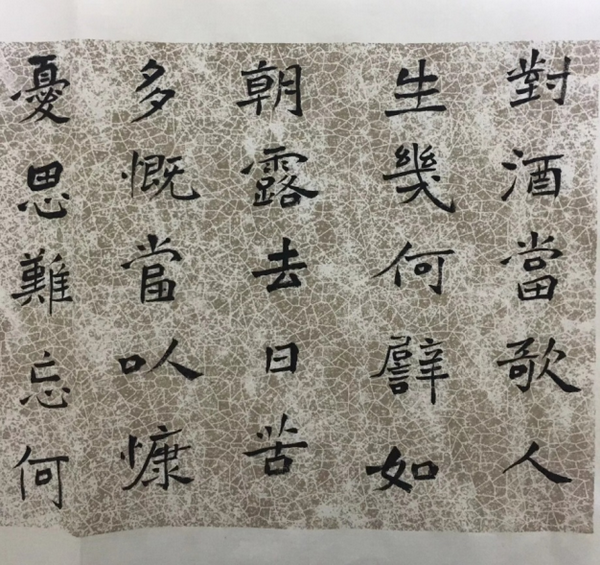 對酒當歌人
生幾何譬如
朝露去日苦
多慨當以慷
憂思難忘何